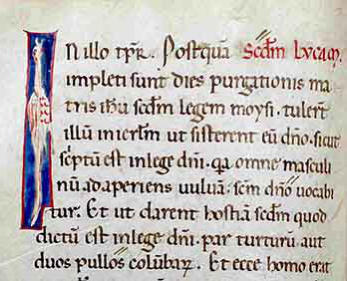 In illo tp̄r. Postquā Scdm̄ lucam.
impleti sunt dies purgationis ma
tris ih̄u scdm̄ legem moysi. tulert̄
illū in ierlm̄ ut sisterent eū dn̄o. sicut
scrptū est in lege dn̄i. q̄a omne masculi
nū adaperiens uuluā. scm̄ dn̄o uocabi
tur. Et ut darent hostiā scdm̄ quod
dictū est in lege dn̄i. par turturū aut
duos pullos colūbaꝝ. Et ecce homo erat